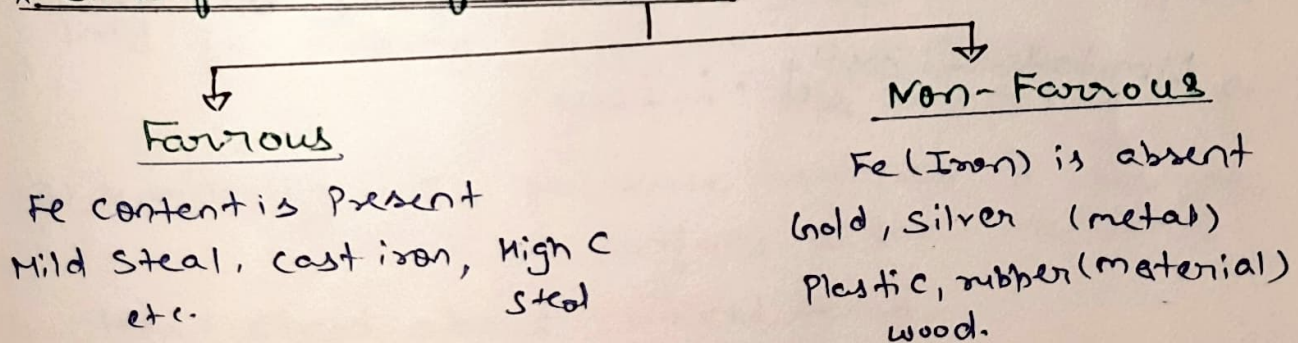 Farrous
Fe content is Present
Mild Steal, cast iron, High C
Steal
etc.
Non-Farrous
Fe (Iron) is absent
Gold, Silver (metal)
Plastic, rubber (material)
wood.